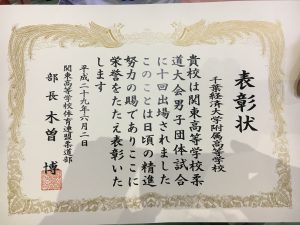 表彰状
千葉経済大学附属高等学校
貴校は関東高等学校柔
道大会男子団体試合
に十回出場されました
このことは日頃の精進
努力の賜でありここに
栄誉をたたえ表彰いた
します
平成二十九年六月二日
関東高等学校体育連盟柔道部
部長 木曽 博